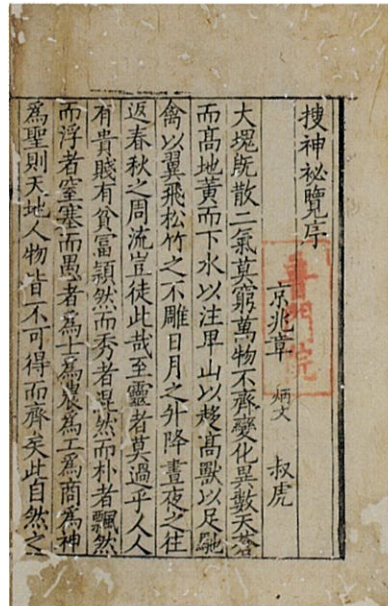 搜神祕覽序
京兆章 炳文 叔虎
大塊旣散二氣莫窮萬物不齊變化異數天蒼
而高地黃而下水以注卑山以趍高獸以足馳
禽以翼飛松竹之不雕日月之升降晝夜之往
返春秋之周流豈徒此哉至靈者莫過乎人人
有貴賤有貧冨頴然而秀者混然而朴者飄然
而浮者窒塞而愚者爲士爲農爲工爲商爲神
爲聖則天地人物皆不可得而齊矣此自然之
普門院